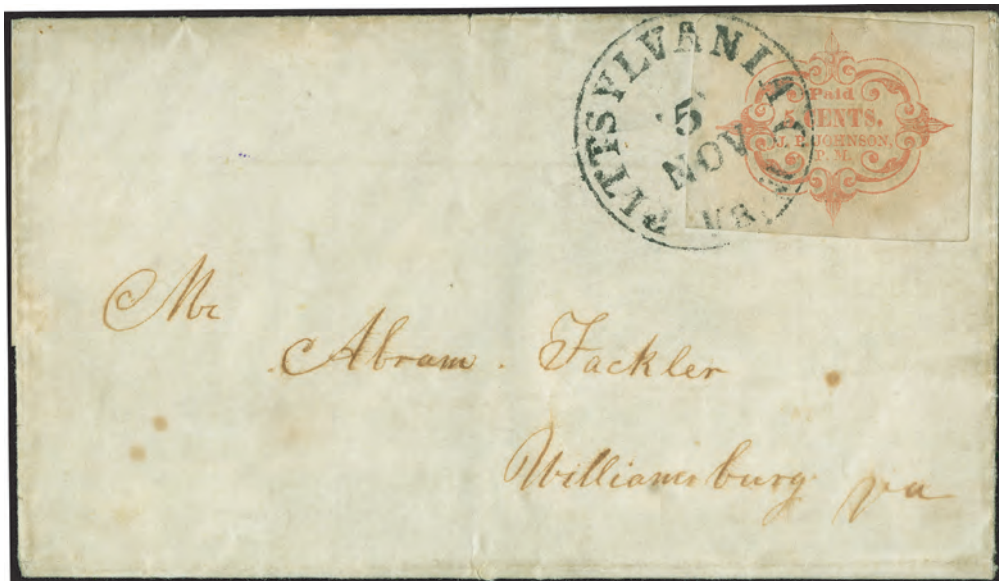 PITTSYLVANIA C.H.
Va.
5
NOV
Paid
5 CENTS.
J. P. JOHNSON,
P. M.
Mr
Abram. Fackler
Williamsburg va